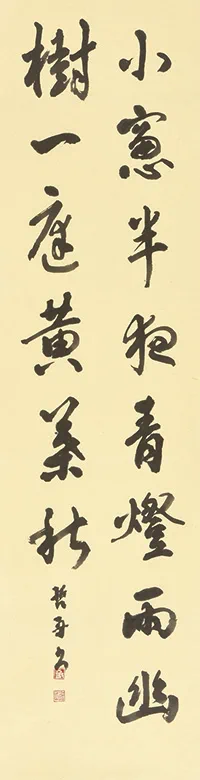 小窻半夜青燈雨幽
樹一庭黄葉秋